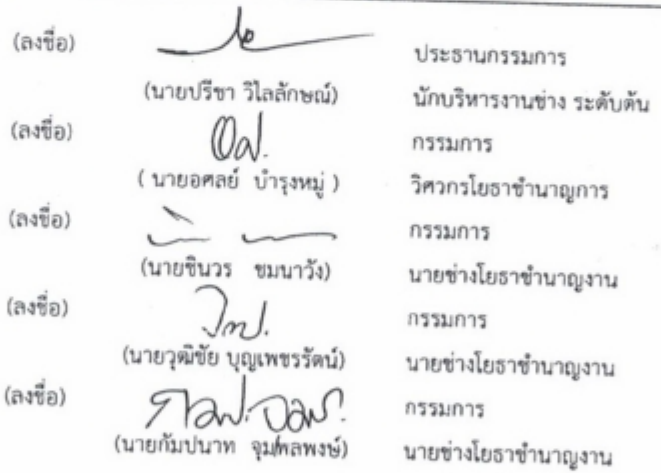 (ลงชื่อ) ประธานกรรมการ
(นายปรีชา วิไลลักษณ์) นักบริหารงานช่าง ระดับต้น
(ลงชื่อ) กรรมการ
( นายอศลย์ บำรุงหมู่ ) วิศวกรโยธาชำนาญการ
(ลงชื่อ) กรรมการ
(นายชินวร ชมนาวัง) นายช่างโยธาชำนาญงาน
(ลงชื่อ) กรรมการ
(นายวุฒิชัย บุญเพชรรัตน์) นายช่างโยธาชำนาญงาน
(ลงชื่อ) กรรมการ
(นายกัมปนาท จุมพลพงษ์) นายช่างโยธาชำนาญงาน